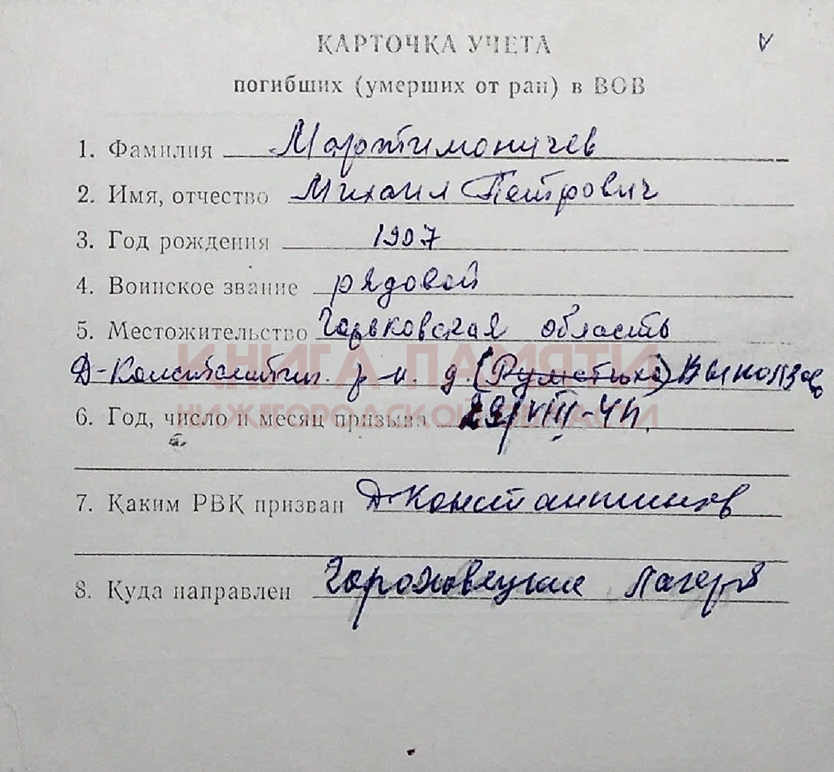 КАРТОЧКА УЧЕТА
погибших (умерших от ран) в ВОВ
1. Фамилия Мартимоничев
2. Имя, отчество Михаил Петрович
3. Год рождения 1907
4. Воинское звание рядовой
5. Местожительство Горьковская область
Д-Константин. р-н. д.
КНИГА ПАМЯТИ
НИЖЕГОРОДСКОЙ ОБЛАСТИ
6. Год, число и месяц призыва 29/VIII-41.
7. Каким РВК призван Д-Константинов
8. Куда направлен Гороховецкие лагеря